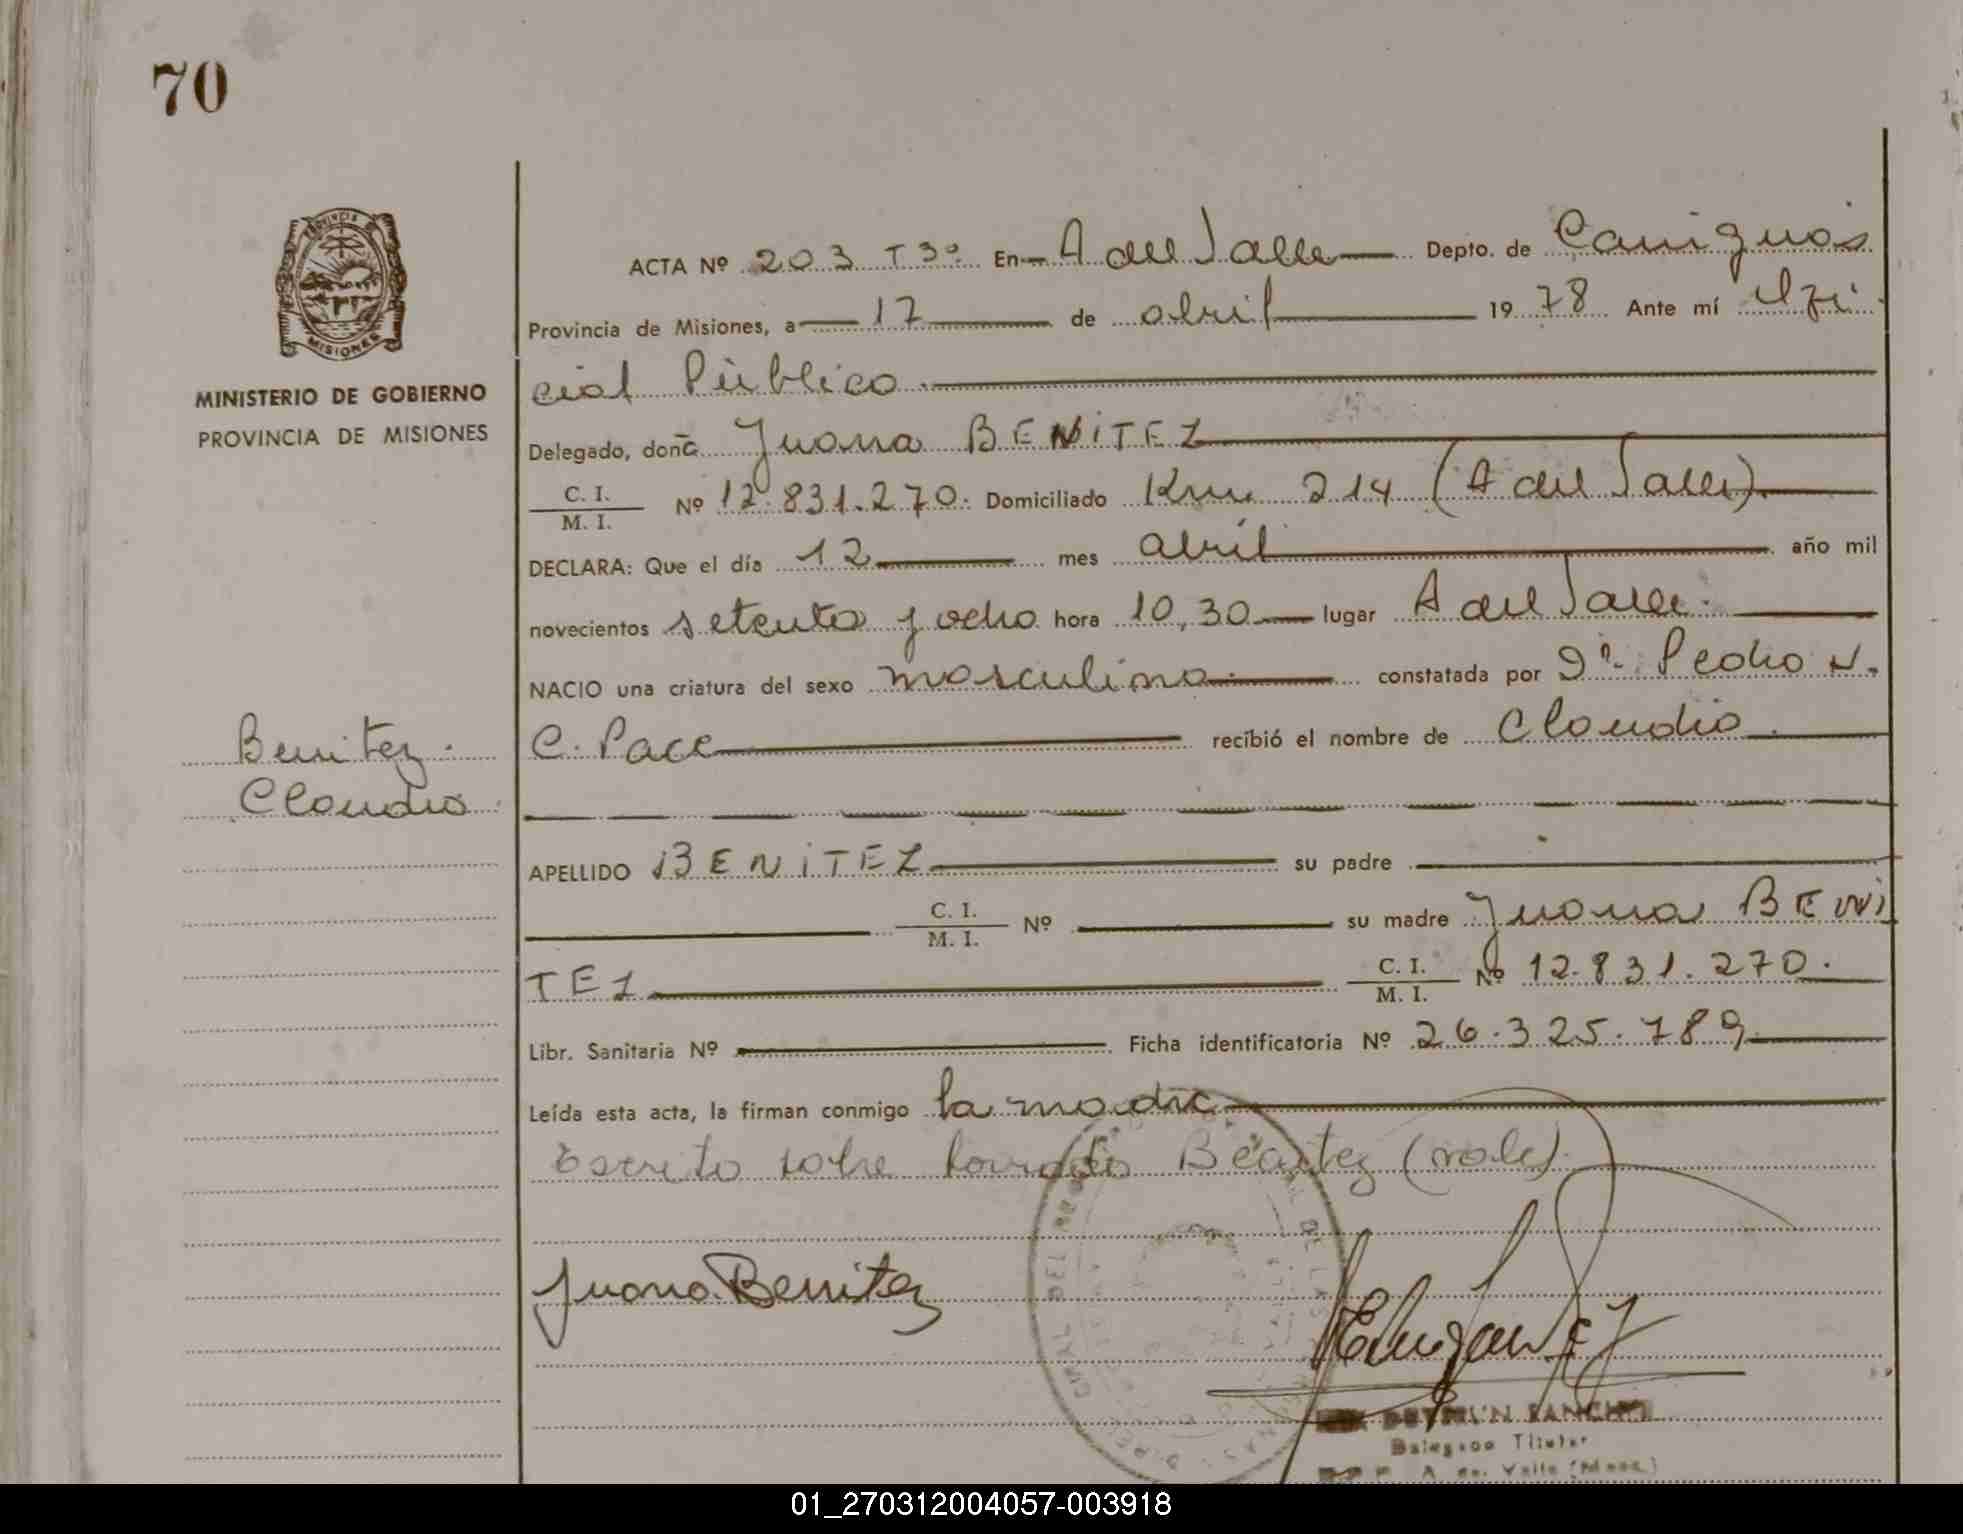 70
PROVINCIA
MISIONES
MINISTERIO DE GOBIERNO
PROVINCIA DE MISIONES
ACTA Nº 203 T3º En A del Valle Depto. de Cainguás
Provincia de Misiones, a 17 de abril 1978 Ante mí Ofi
cial Público
Delegado, doña Juana BENITEZ
C. I.
M. I. Nº 12.831.270. Domiciliado Km 214 (A del Valle)
DECLARA: Que el día 12 mes abril año mil
novecientos setenta y ocho hora 10,30 lugar A del Valle.
NACIO una criatura del sexo masculino constatada por Dr. Pedro N.
C. Pace recibió el nombre de Claudio
Benitez.
Claudio
APELLIDO BENITEZ su padre
C. I.
M. I. Nº su madre Juana BENI
TEZ C. I.
M. I. Nº 12.831.270.
Libr. Sanitaria Nº Ficha identificatoria Nº 26.325.789
Leída esta acta, la firman conmigo la madre
Escrito sobre borrado Benitez (vale).
Juana Benitez
Delegado Titular
A. del Valle (Mnes.)
01_270312004057-003918